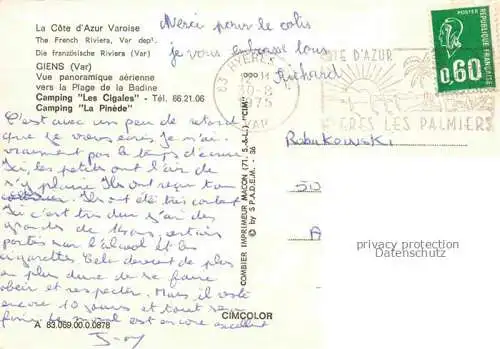 La Côte d'Azur Varoise
The French Riviera, Var depᵗ.
Die französische Riviera (Var)
GIENS (Var)
Vue panoramique aérienne
vers la Plage de la Badine
Camping "Les Cigales" - Tél. 66.21.06
Camping "La Pinède"
C'est avec un peu de retard
que je vous écris je n'ai
vraiment pas le temps d'écrire
Ici, les petits ont l'air de
s'y plaire Ils ont reçu ton
Ils ont été très content
Ici c'est très dur j'ai des
grands de 14 ans, certains
portés sur l'alcool et les
cigarettes Cela devient de plus
en plus dur de se faire
obéir et respecter. Mais, il reste
encore 10 jours et tout sera
fini. Le moral est encore excellent
A 83.069.00.0.0878
CIMCOLOR
COMBIER IMPRIMEUR MACON (71. S.-&-L.) "CIM"
© by S.P.A.D.E.M. - 36
Merci pour le colis
je vous embrasse tous
Richard
83 HYERES
30-8
1975
VAR
CÔTE D'AZUR
HYERES LES PALMIERS
POSTES
REPUBLIQUE FRANÇAISE
0,60
Rabukowski
50
A
privacy protection
Datenschutz